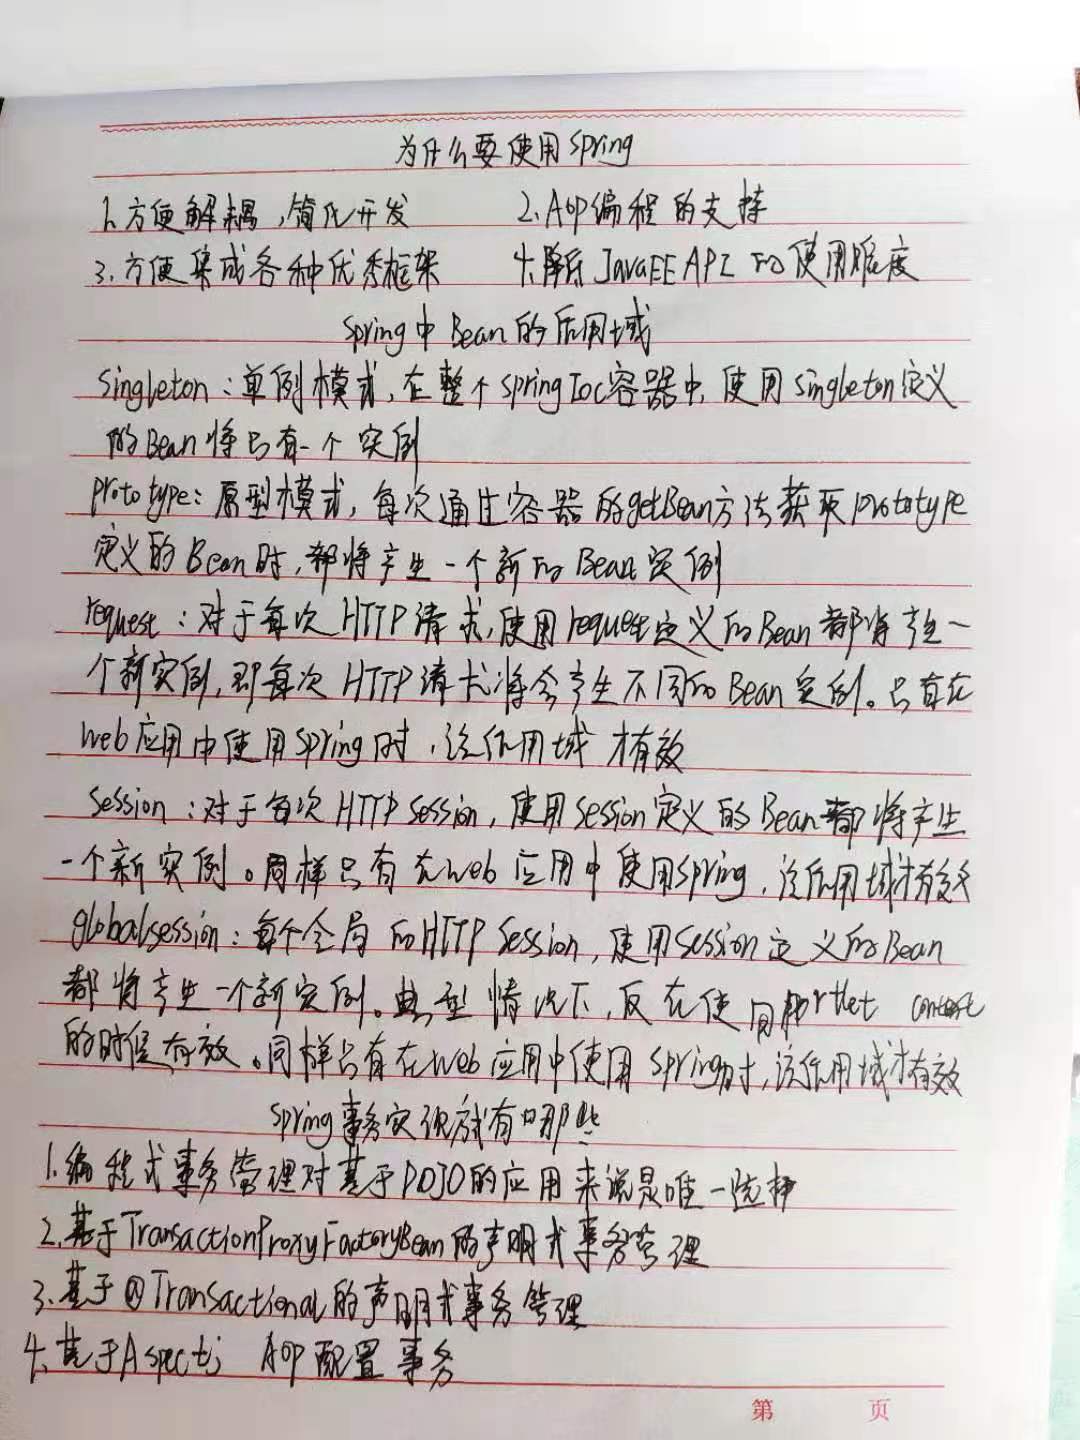 为什么要使用Spring
1.方便解耦,简化开发 2.AOP编程的支持
3.方便集成各种优秀框架 4.降低JavaEE API的使用难度
Spring中Bean的作用域
Singleton:单例模式,在整个springIoc容器中,使用singleton定义
的Bean将只有一个实例
prototype:原型模式,每次通过容器的getBean方法获取prototype
定义的Bean时,都将产生一个新的Bean实例
request:对于每次HTTP请求,使用request定义的Bean都将产生一
个新实例,即每次HTTP请求将会产生不同的Bean实例。只有在
web应用中使用Spring时,该作用域才有效
Session:对于每次HTTP Session,使用Session定义的Bean都将产生
一个新实例。同样只有在web应用中使用spring,该作用域才有效
globalsession:每个全局的HTTP Session,使用session定义的Bean
都将产生一个新实例。典型情况下,仅在使用portlet context
的时候有效。同样只有在web应用中使用Spring时,该作用域才有效
Spring事务实现方式有哪些
1.编程式事务管理对基于POJO的应用来说是唯一选择
2.基于TransactionProxyFactoryBean的声明式事务管理
3.基于@Transactional的声明式事务管理
4.基于Aspectj AOP配置事务
第 页